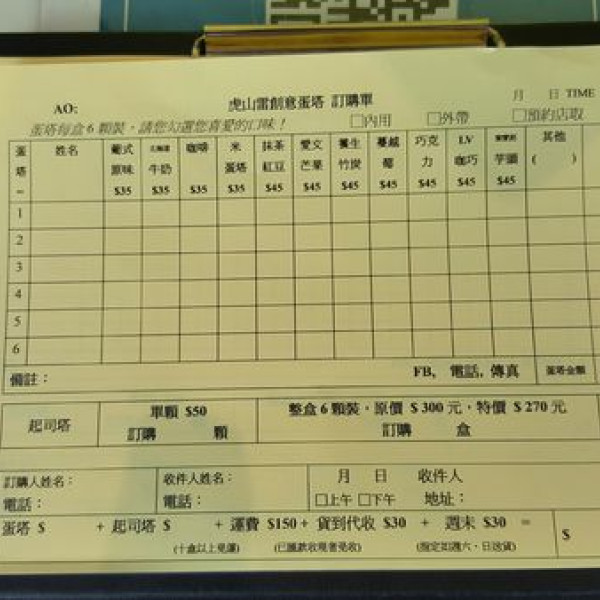 AO: 虎山雷創意蛋塔 訂購單 月 日 TIME
蛋塔每盒6顆裝，請您勾選您喜愛的口味！ □內用 □外帶 □預約店取
蛋塔 姓名 葡式原味 $35 北海道牛奶 $35 咖啡 $35 米蛋塔 $35 抹茶紅豆 $45 愛文芒果 $45 養生竹炭 $45 蔓越莓 $45 巧克力 $45 LV咖巧 $45 芋頭 $45 其他( )
1
2
3
4
5
6
備註： FB, 電話, 傳真 蛋塔金額
起司塔 單顆 $50 整盒6顆裝，原價 $300元，特價 $270元
訂購 顆 訂購 盒
訂購人姓名： 收件人姓名： 月 日 收件人
電話： 電話： □上午 □下午 地址：
蛋塔 $ + 起司塔 $ + 運費 $150 + 貨到代收 $30 + 週末 $30 = $
(十盒以上免運) (已匯款收現者免收) (指定如週六、日送貨)